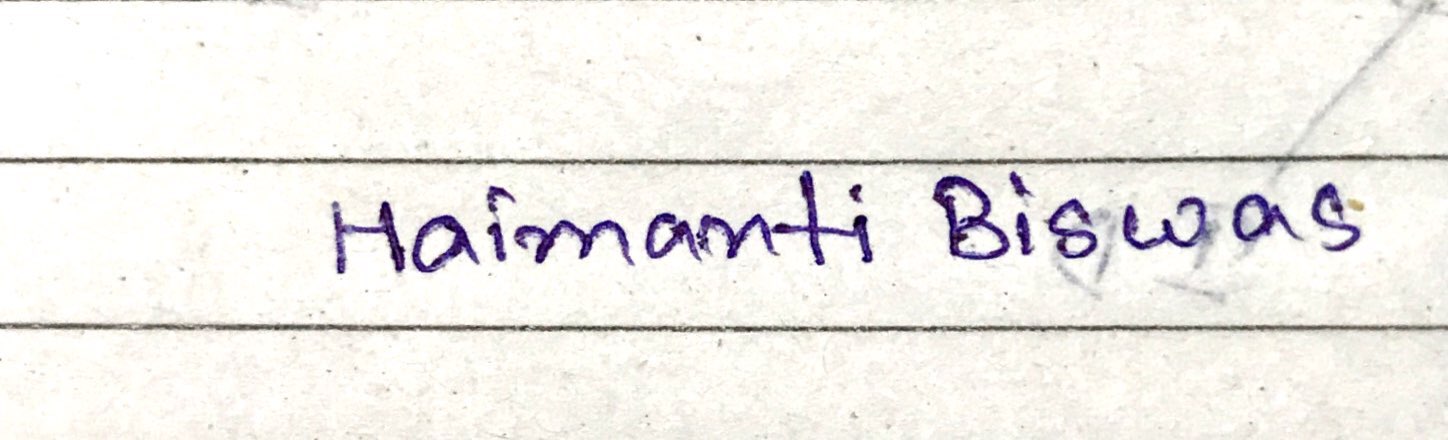 Haimanti Biswas